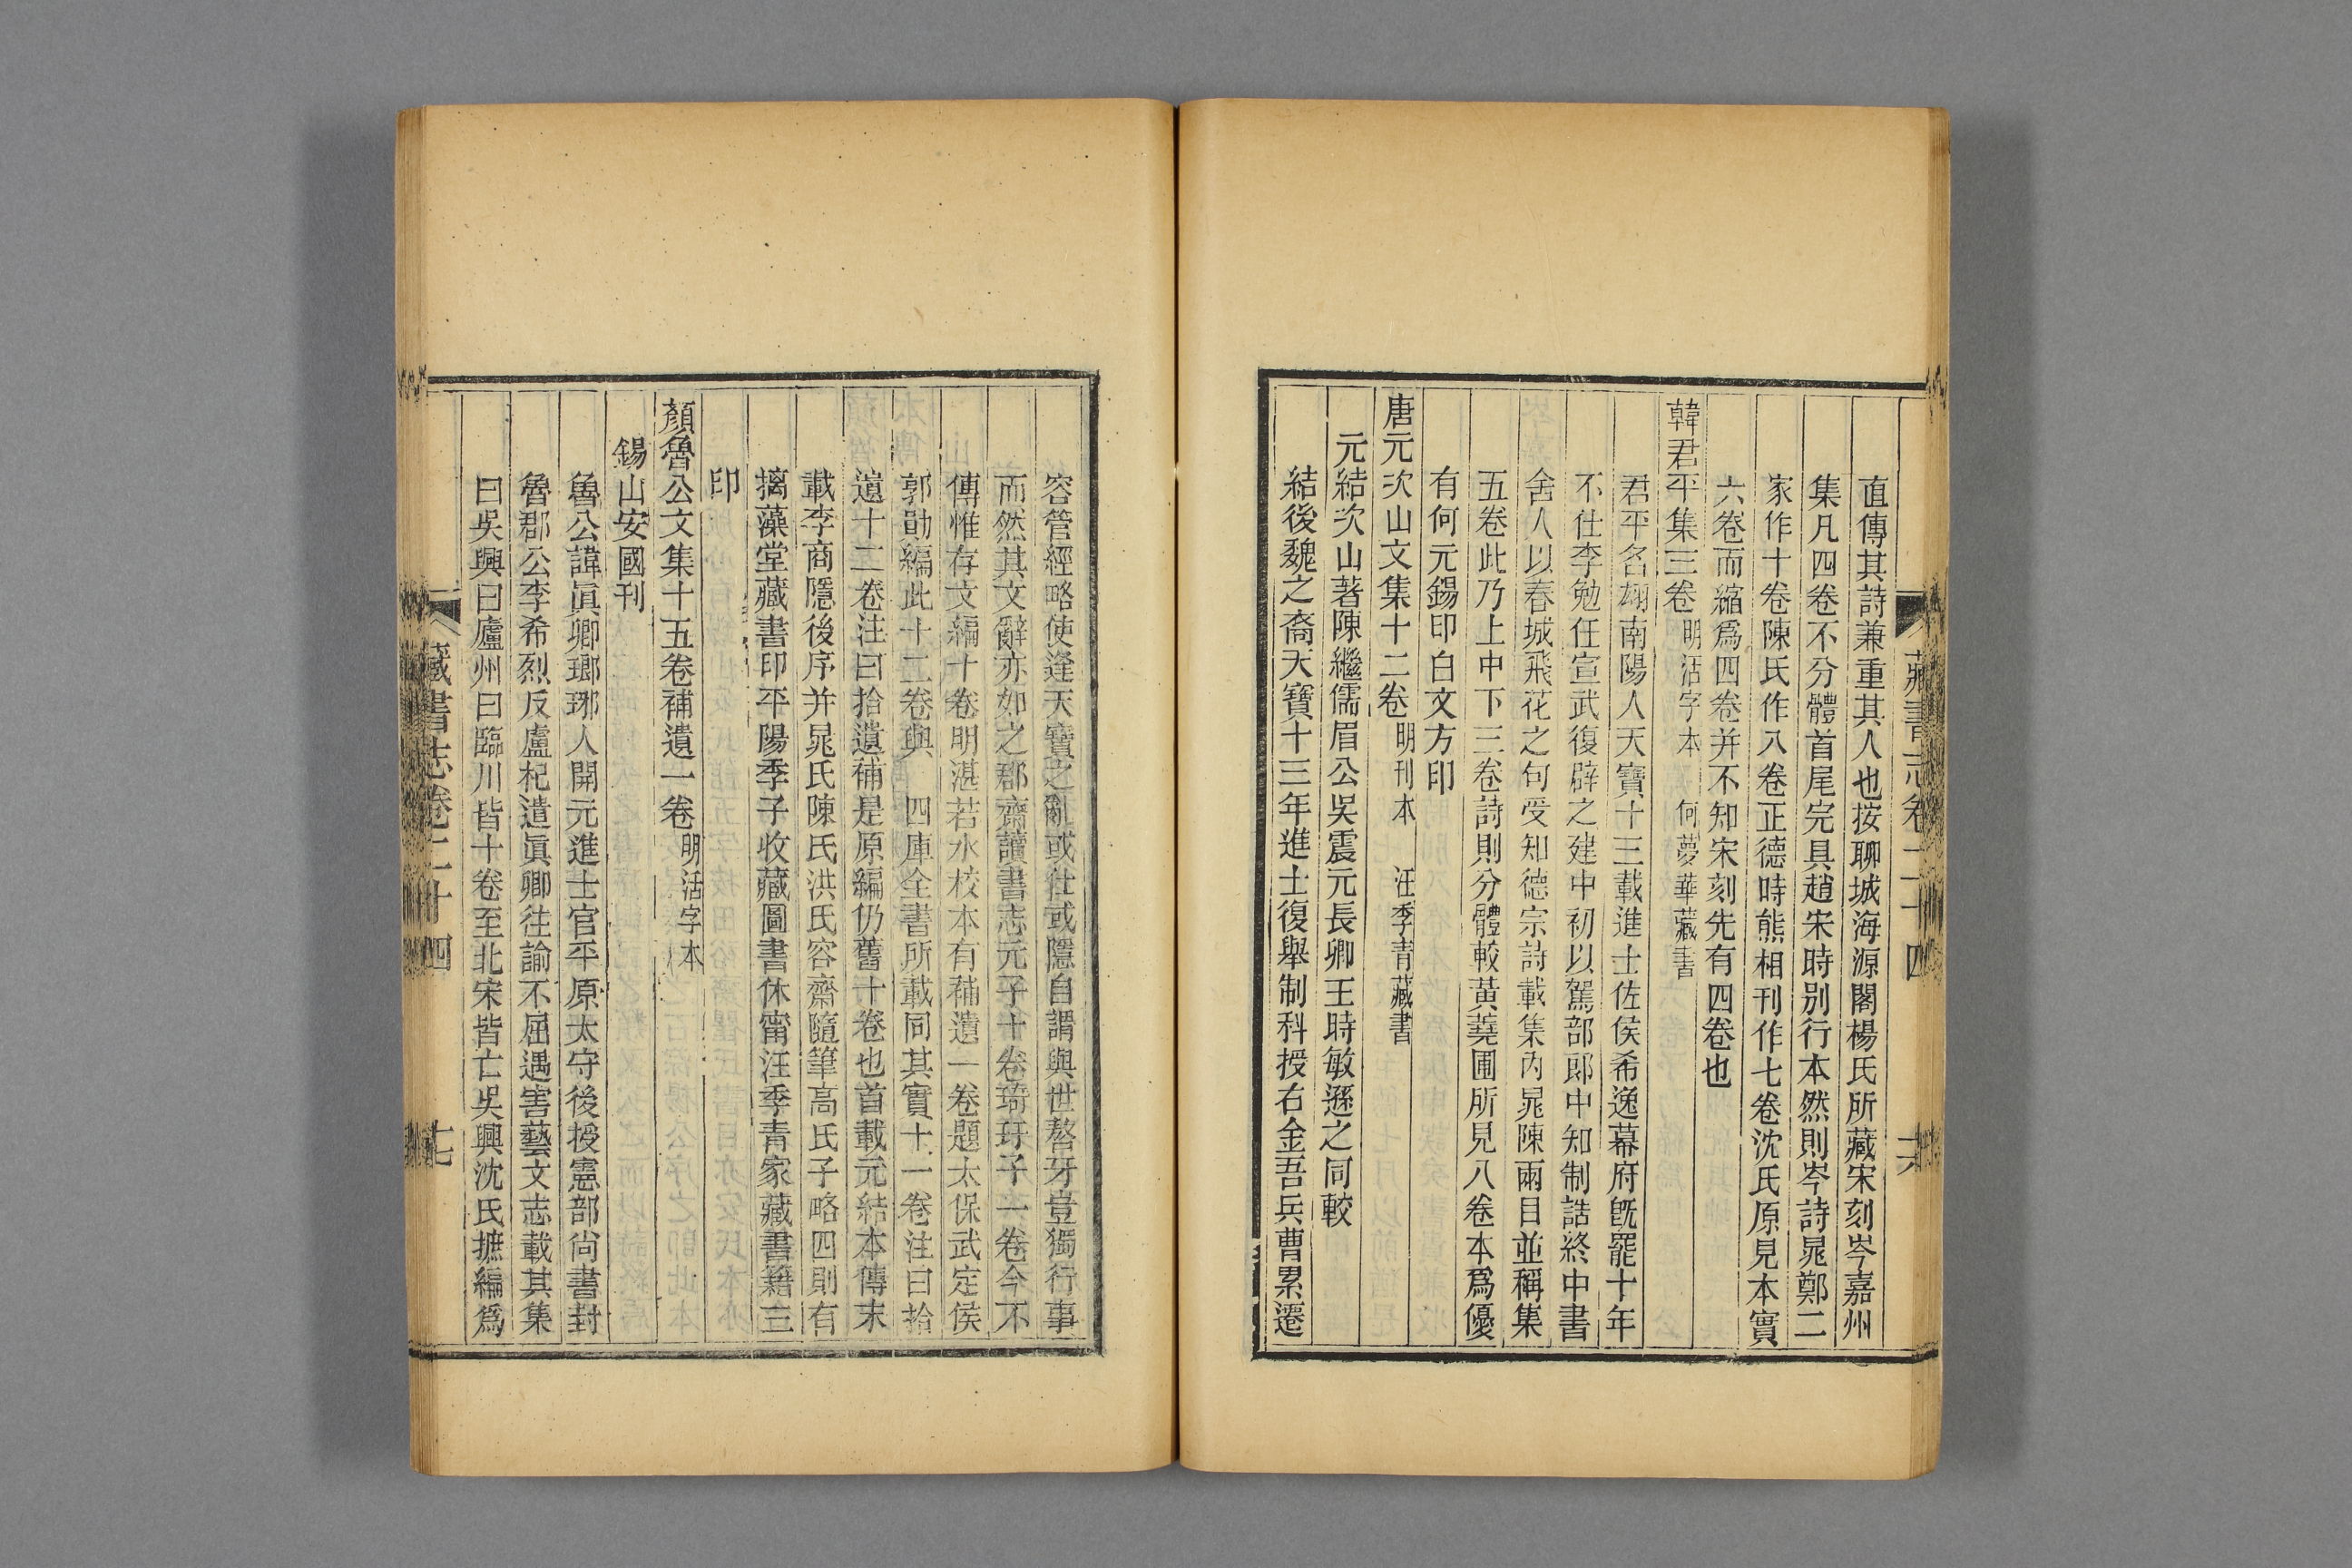 藏書志卷二十四
十六
直傳其詩兼重其人也按聊城海源閣楊氏所藏宋刻岑嘉州
集凡四卷不分體首尾完具趙宋時別行本然則岑詩晁鄭二
家作十卷陳氏作八卷正德時熊相刊作七卷沈氏原見本實
六卷而縮爲四卷并不知宋刻先有四卷也
韓君平集三卷 明活字本 何夢華藏書
君平名翃南陽人天寶十三載進士佐侯希逸幕府旣罷十年
不仕李勉任宣武復辟之建中初以駕部郎中知制誥終中書
舍人以春城飛花之句受知德宗詩載集內晁陳兩目並稱集
五卷此乃上中下三卷詩則分體較黃蕘圃所見八卷本爲優
有何元錫印白文方印
唐元次山文集十二卷 明刊本 汪季青藏書
元結次山著陳繼儒眉公吳震元長卿王時敏遜之同較
結後魏之裔天寶十三年進士復舉制科授右金吾兵曹累遷
容管經略使逢天寶之亂或仕或隱自謂與世聱牙豈獨行事
而然其文辭亦如之郡齋讀書志元子十卷琦玗子一卷今不
傳惟存文編十卷明湛若水校本有補遺一卷題太保武定侯
郭勛編此十二卷與 四庫全書所載同其實十一卷注曰拾
遺十二卷注曰拾遺補是原編仍舊十卷也首載元結本傳末
載李商隱後序并晁氏陳氏洪氏容齋隨筆高氏子略四則有
摛藻堂藏書印平陽季子收藏圖書休甯汪季青家藏書籍三
印
顏魯公文集十五卷補遺一卷 明活字本
錫山安國刊
魯公諱眞卿瑯琊人開元進士官平原太守後授憲部尙書封
魯郡公李希烈反盧杞遣眞卿往諭不屈遇害藝文志載其集
曰吳興曰廬州曰臨川皆十卷至北宋皆亡吳興沈氏摭編爲
藏書志卷二十四
十七